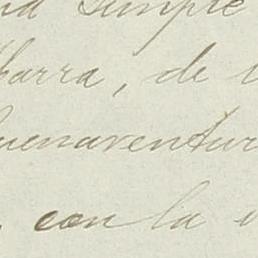 simple
barra, de
uenaventur
con la